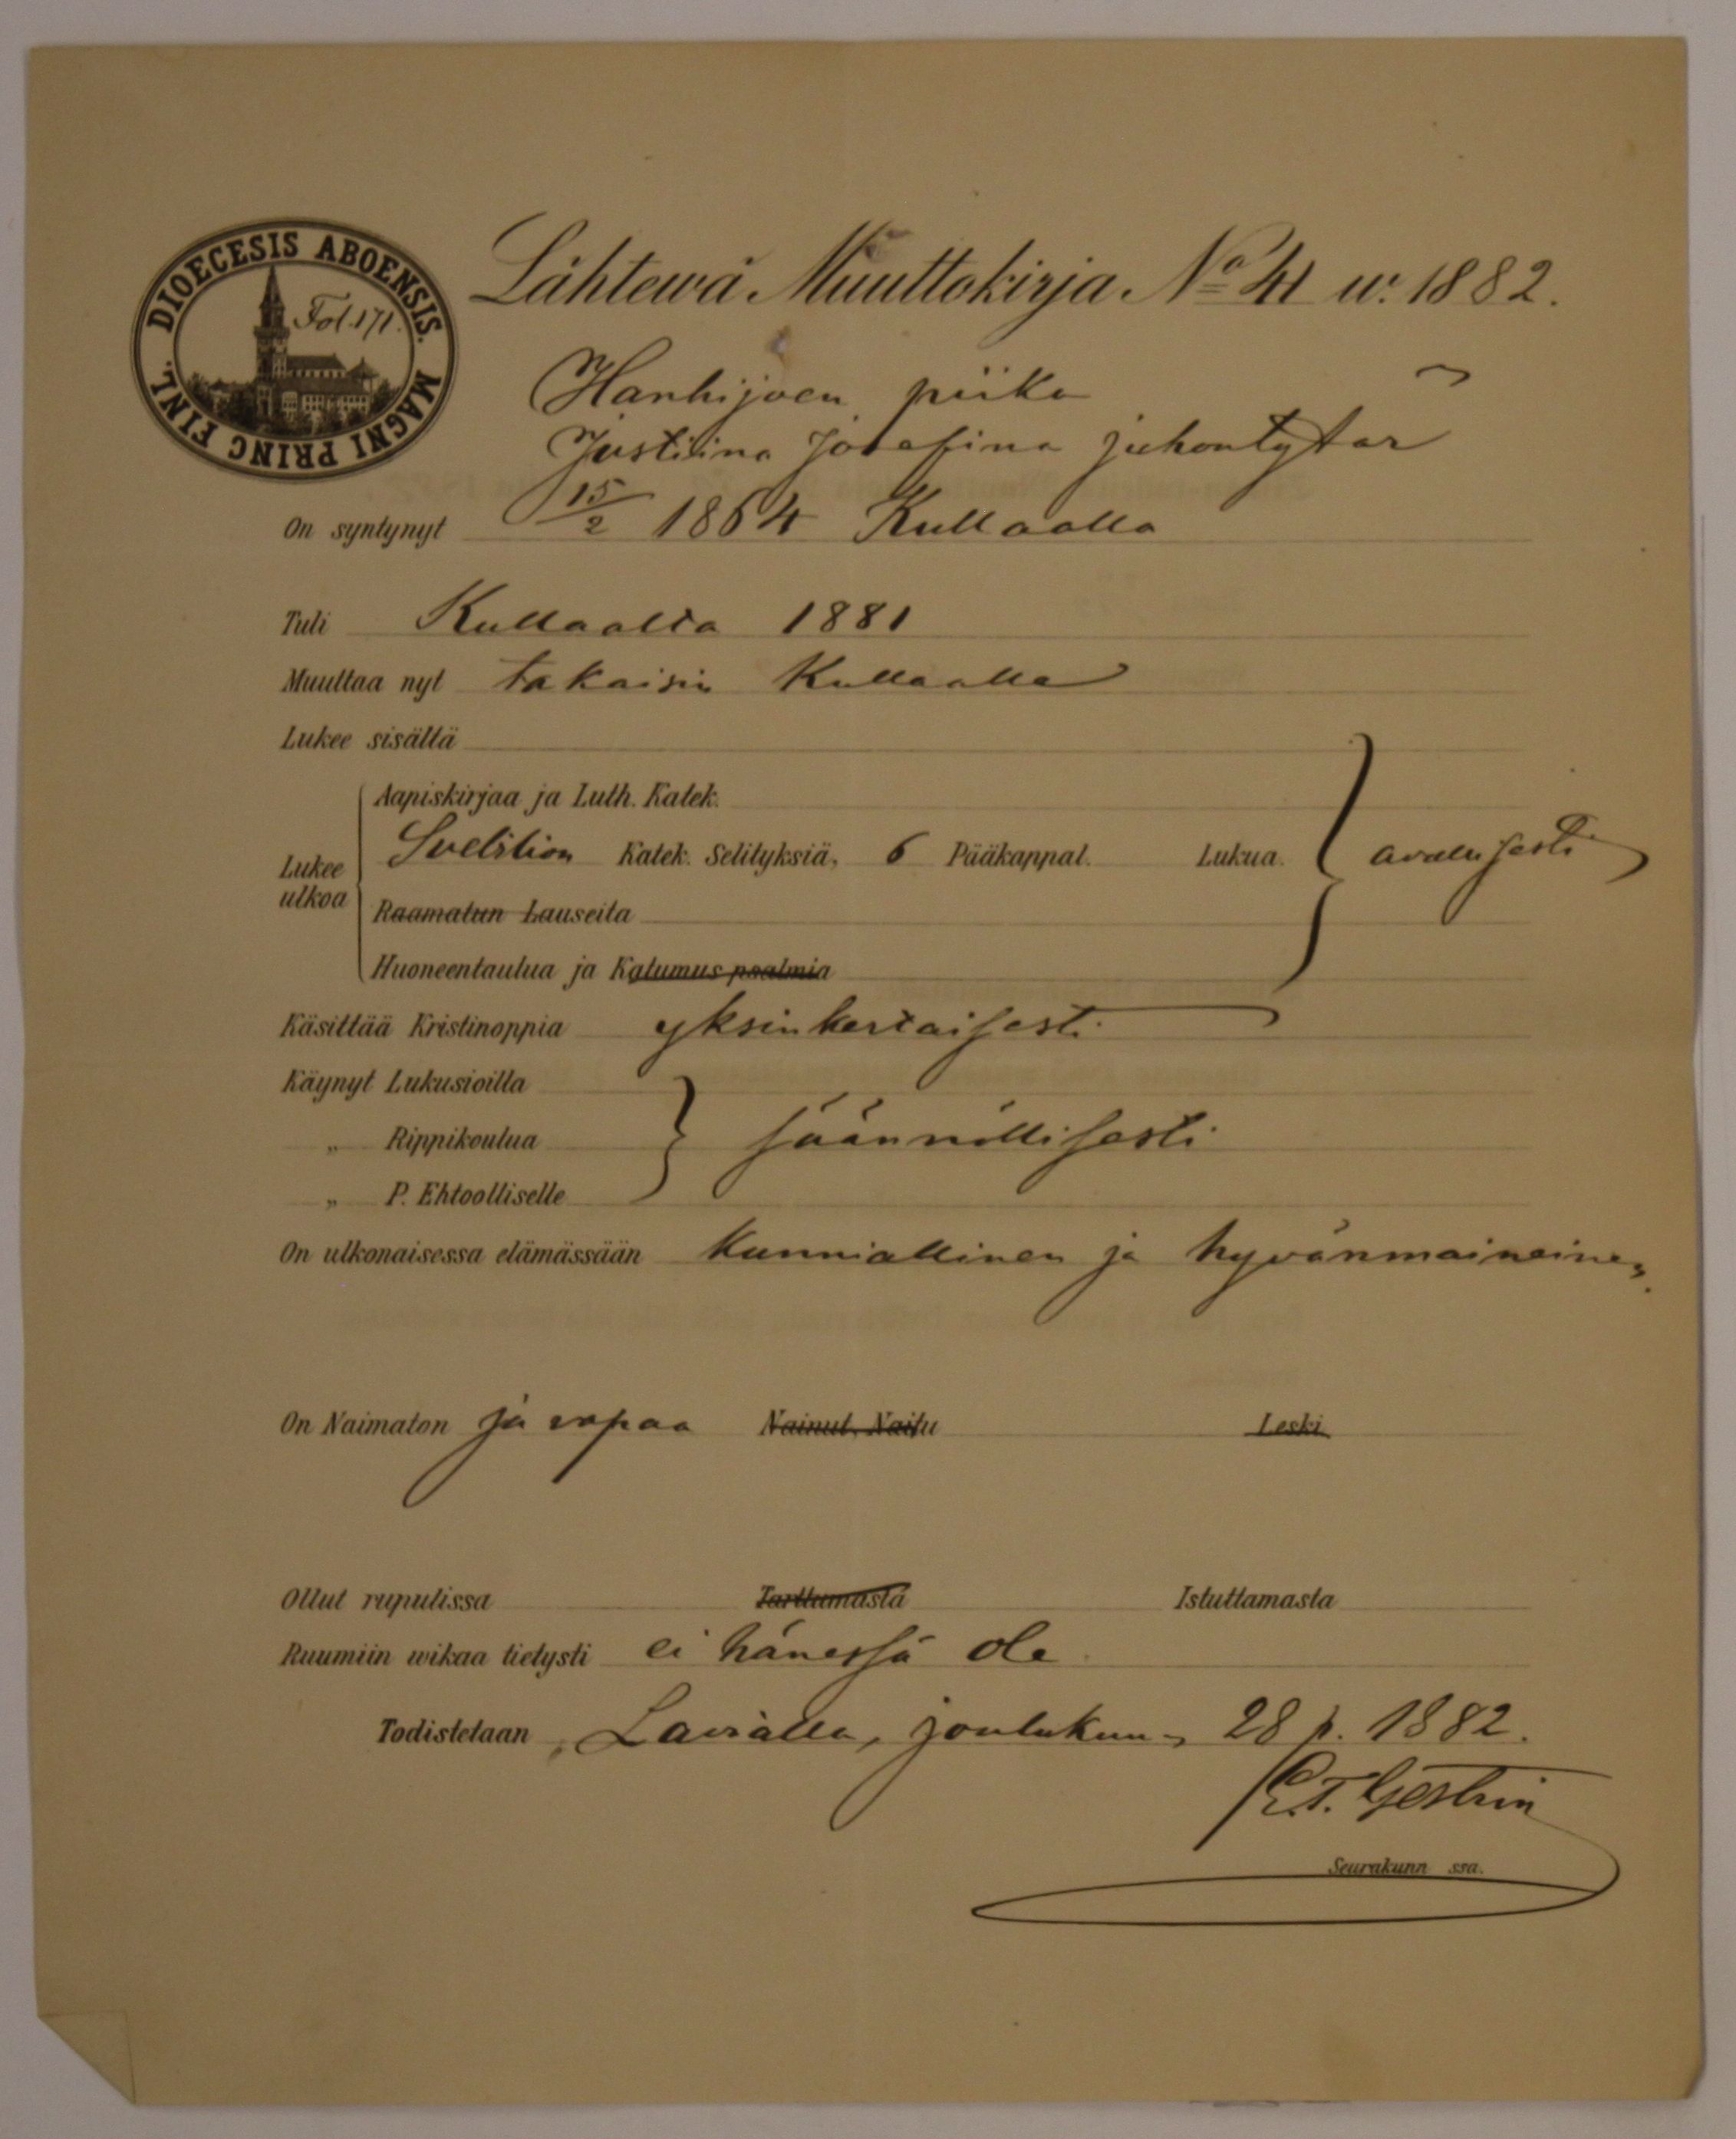 DIOECESIS ABOENSIS. MAGNI PRINC FINL.
Fol. 171.
Lähtewä Muuttokirja No 41 w. 1882.
Hanhijoen piika
Justiina Josefina Juhontytär
On syntynyt 15/2 1864 Kullaalla
Tuli Kullaalta 1881
Muuttaa nyt takaisin Kullaalle
Lukee sisältä
Aapiskirjaa ja Luth. Katek.
Lukee ulkoa Svebilion Katek. Selityksiä, 6 Pääkappal. Lukua. avullisesti
Raamatun Lauseita
Huoneentaulua ja Katumus psalmia
Käsittää Kristinoppia yksinkertaisesti
Käynyt Lukusioilla
„ Rippikoulua säännöllisesti
„ P. Ehtoolliselle
On ulkonaisessa elämässään kunniallinen ja hyvänmaineinen.
On Naimaton ja vapaa Nainut, Naitu Leski
Ollut rupulissa Tarttumasta Istuttamasta
Ruumiin wikaa tietysti ei hänessä ole
Todistetaan, Lavialla, joulukuun 28 p. 1882.
E.T. Gestrin
Seurakunn ssa.